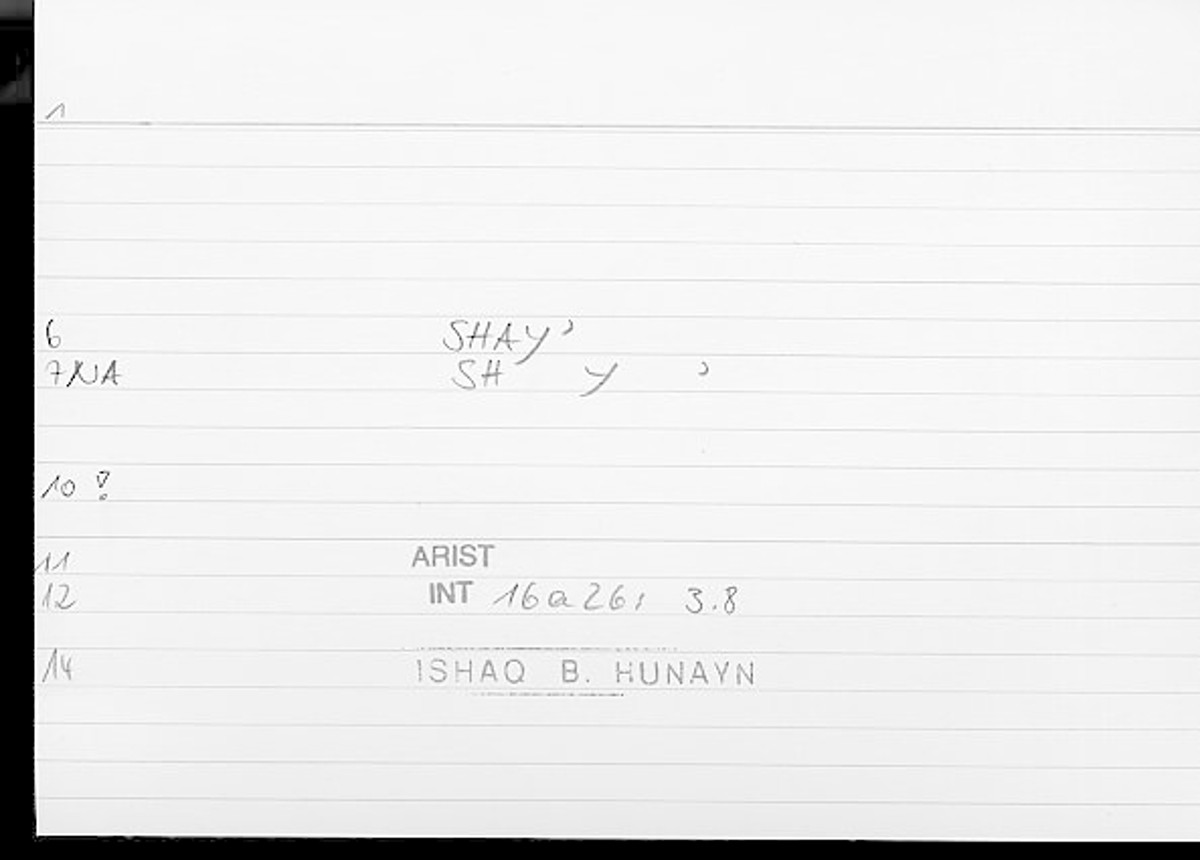 1
6 SHAY’
7NA SH Y ’
10 !
11 ARIST
12 INT 16a26; 3.8
14 ISHAQ B. HUNAYN